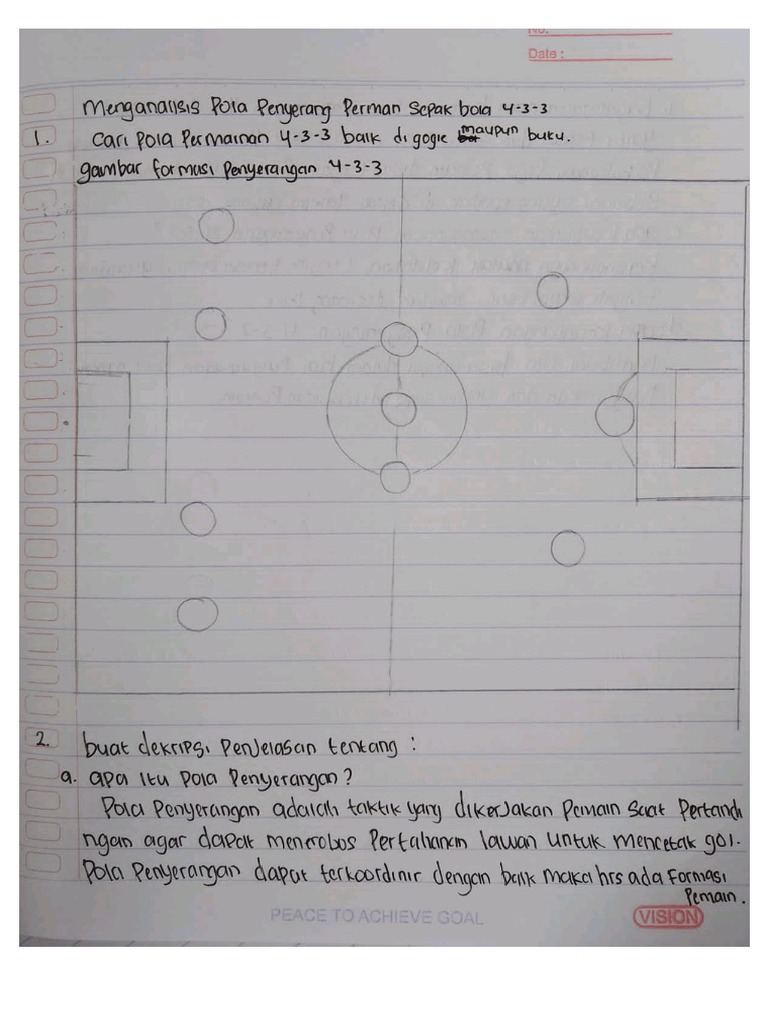 No:
Date :
Menganalisis Pola Penyerang Perman Sepak bola 4-3-3
1. Cari pola Permainan 4-3-3 baik di gogle maupun buku.
gambar formasi Penyerangan 4-3-3
2. buat dekripsi Penjelasan tentang :
a. apa itu pola Penyerangan?
Pola Penyerangan adalah taktik yang dikerjakan Pemain saat Pertandi
ngan agar dapat menerobos Pertahanan lawan untuk mencetak gol.
Pola Penyerangan dapat terkoordinir dengan baik maka hrs ada Formasi
Pemain.
PEACE TO ACHIEVE GOAL
VISION